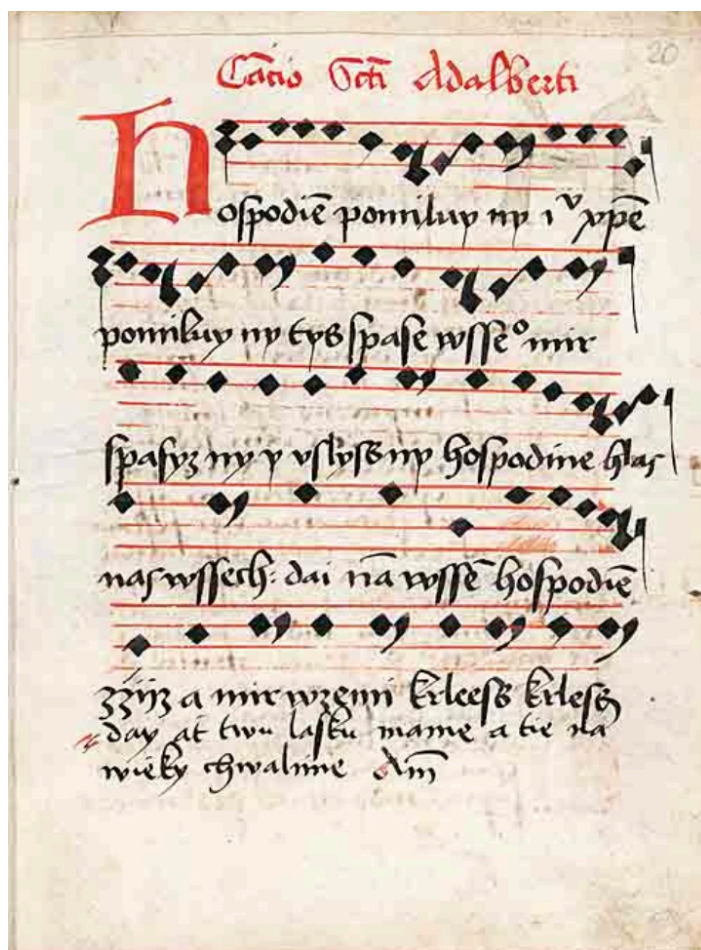 20
Cācio Scti Adalberti
Hospodiē pomiluy ny iᵛ xpē
pomiluy ny tys spase wsseᵒ mir
spasyz ny y uslyss ny hospodine hlas
nas wssech: dai nā wssē hospodiē
zziiz a mir wzemi krleess krless
day at twu lasku mame a tie na
wieky chwalime Am̄